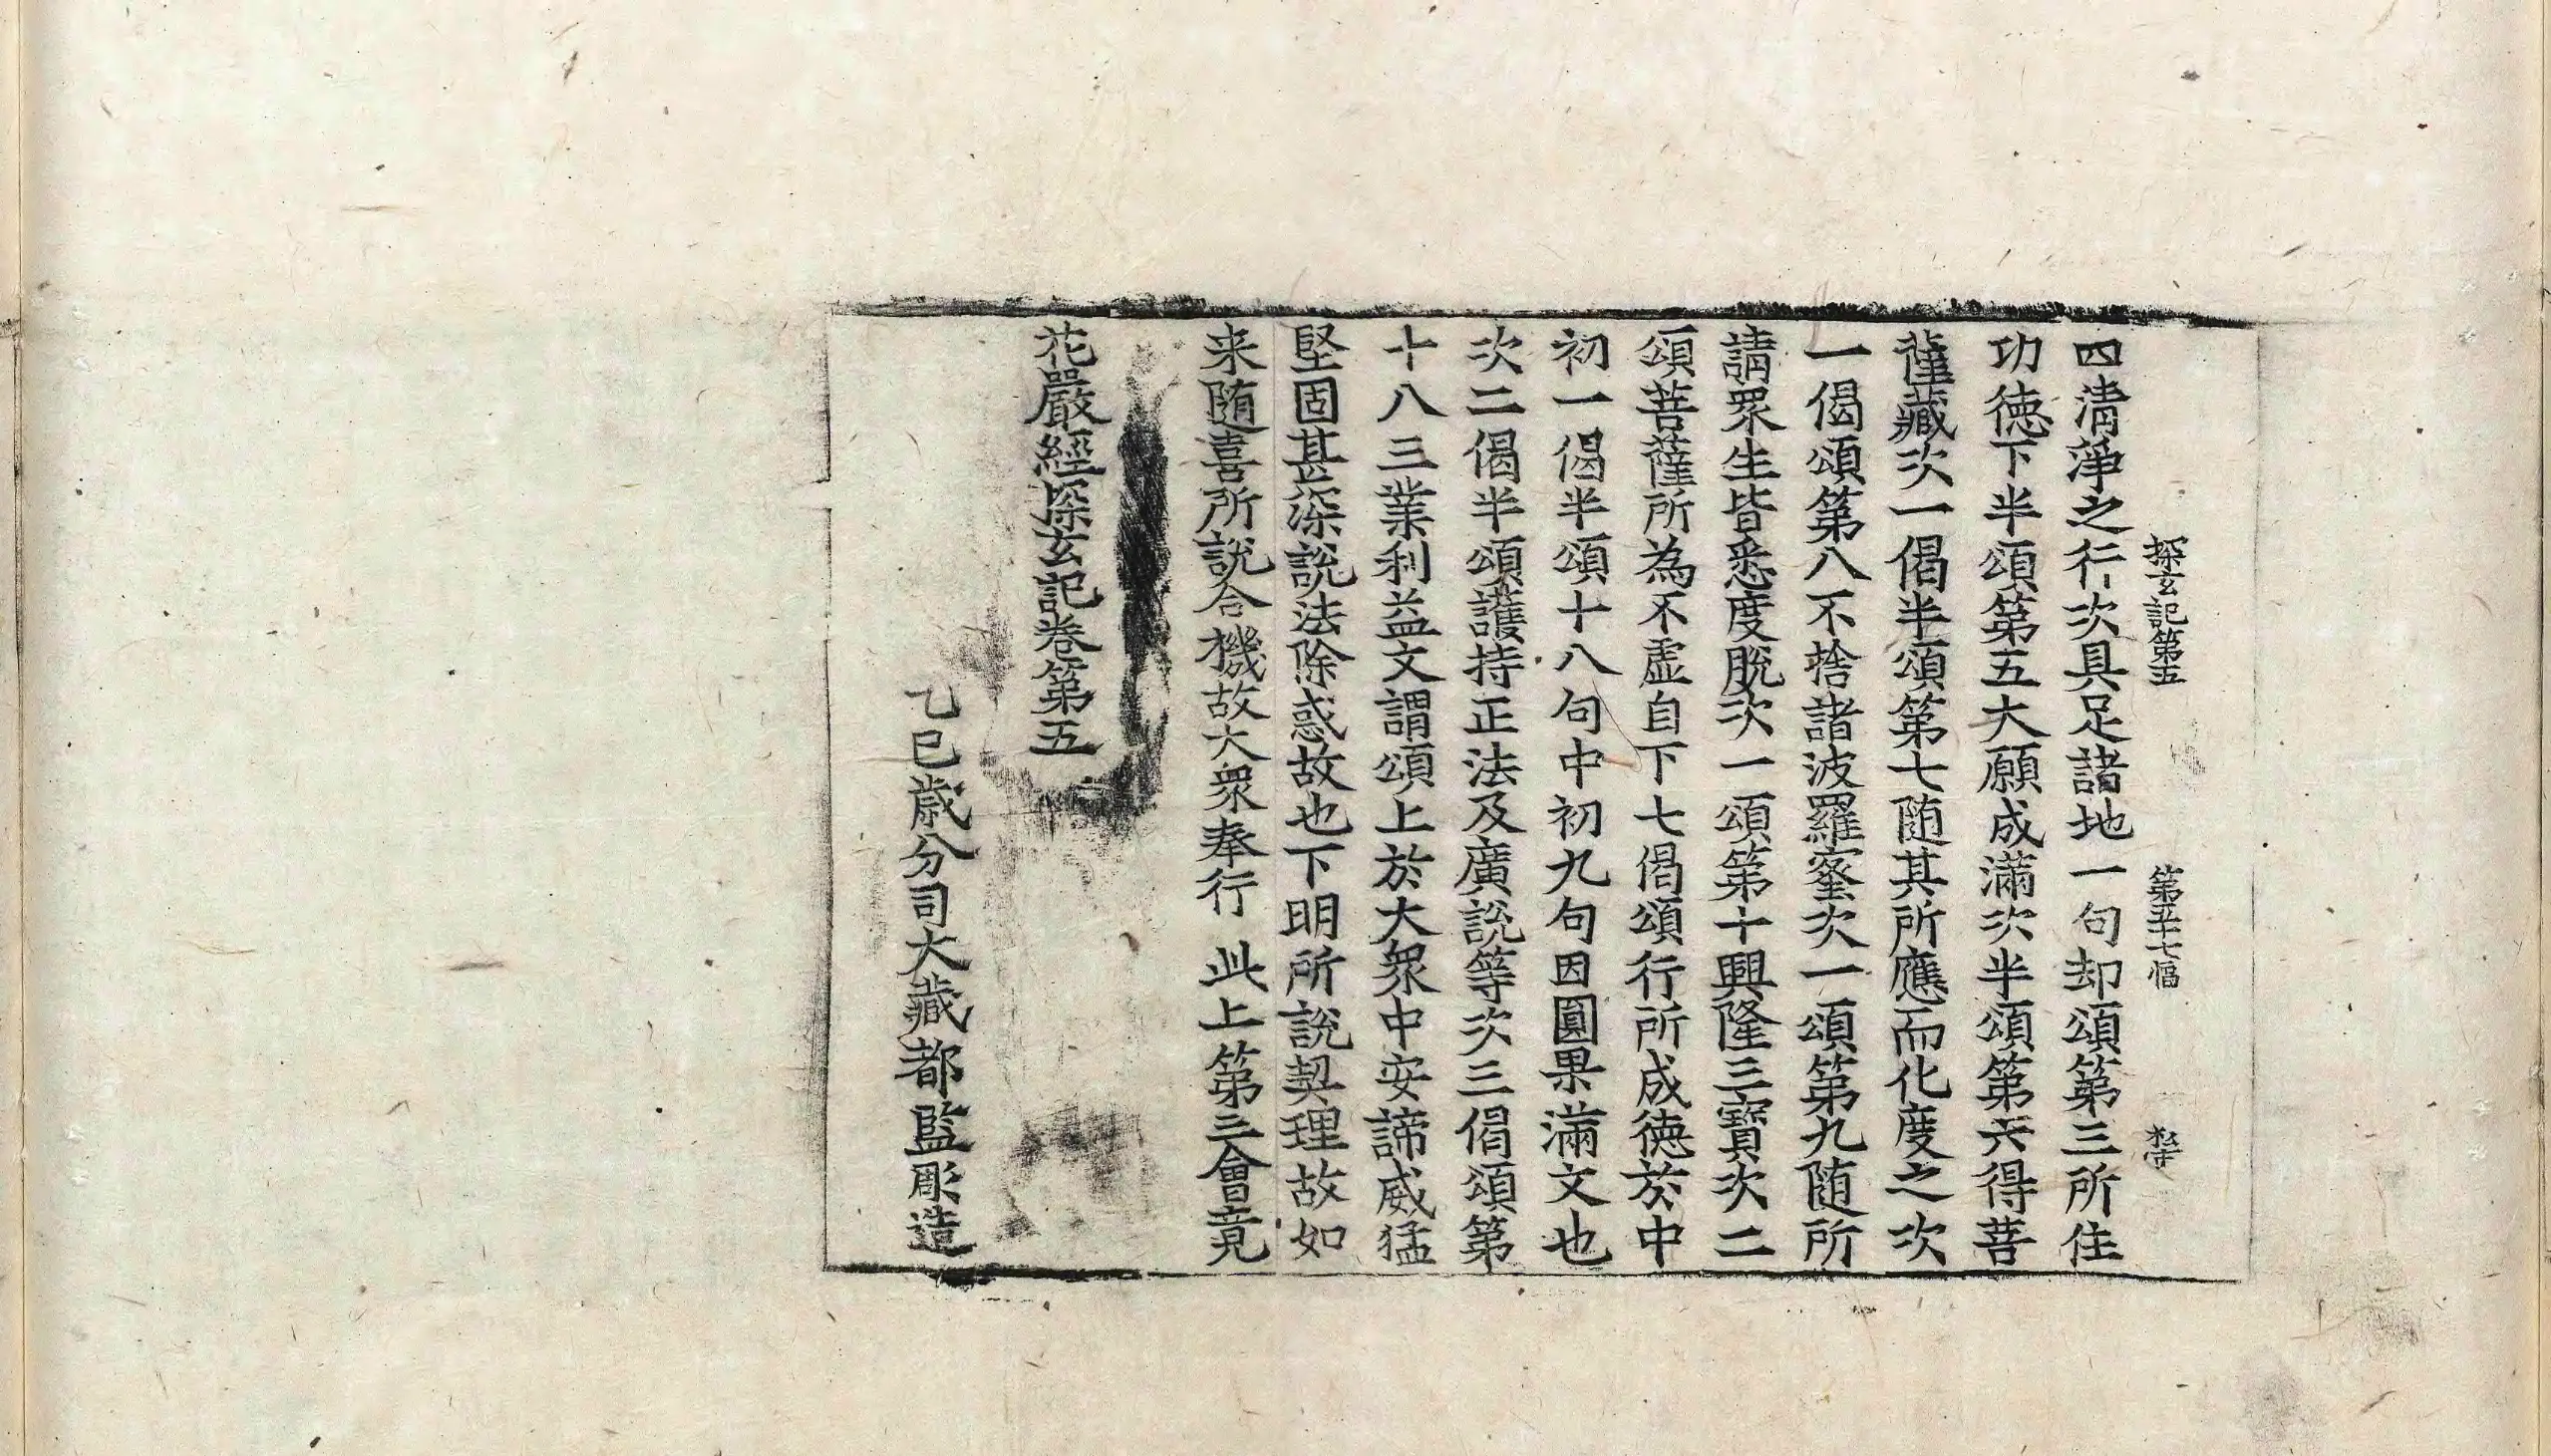 探玄記第五　第五十七幅
四清淨之行次具足諸地一句却頌第三所住
功徳下半頌第五大願成滿次半頌第六得菩
薩藏次一偈半頌第七随其所應而化度之次
一偈頌第八不捨諸波羅蜜次一頌第九随所
請眾生皆悉度脫次一頌第十興隆三寶次二
頌菩薩所為不虛自下七偈頌行所成徳於中
初一偈半頌十八句中初九句因圓果滿文也
次二偈半頌護持正法及廣說等次三偈頌第
十八三業利益文謂頌上於大眾中安諦威猛
堅固甚深說法除惑故也下明所說契理故如
来随喜所說合機故大眾奉行 此上第三會竟
花嚴經探玄記卷第五
乙巳歲分司大藏都監彫造